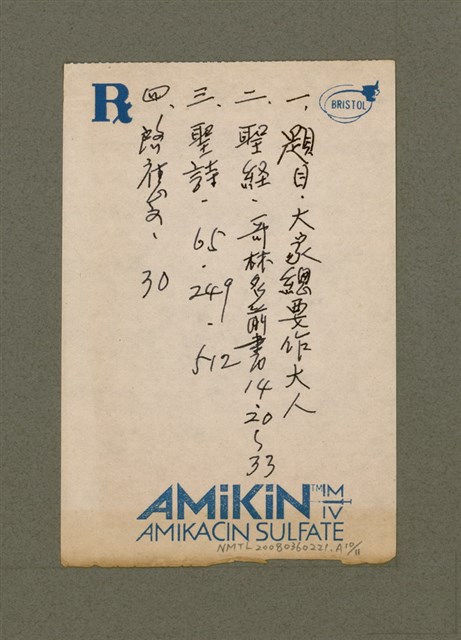 ℞
BRISTOL
一、題目．大家總要作大人
二、聖経．哥林多前書14:20~33
三、聖詩．65．249．512
四、啓應文、30
AMiKiN™ IM
IV
AMIKACIN SULFATE
NMTL20080360221.A 10/11